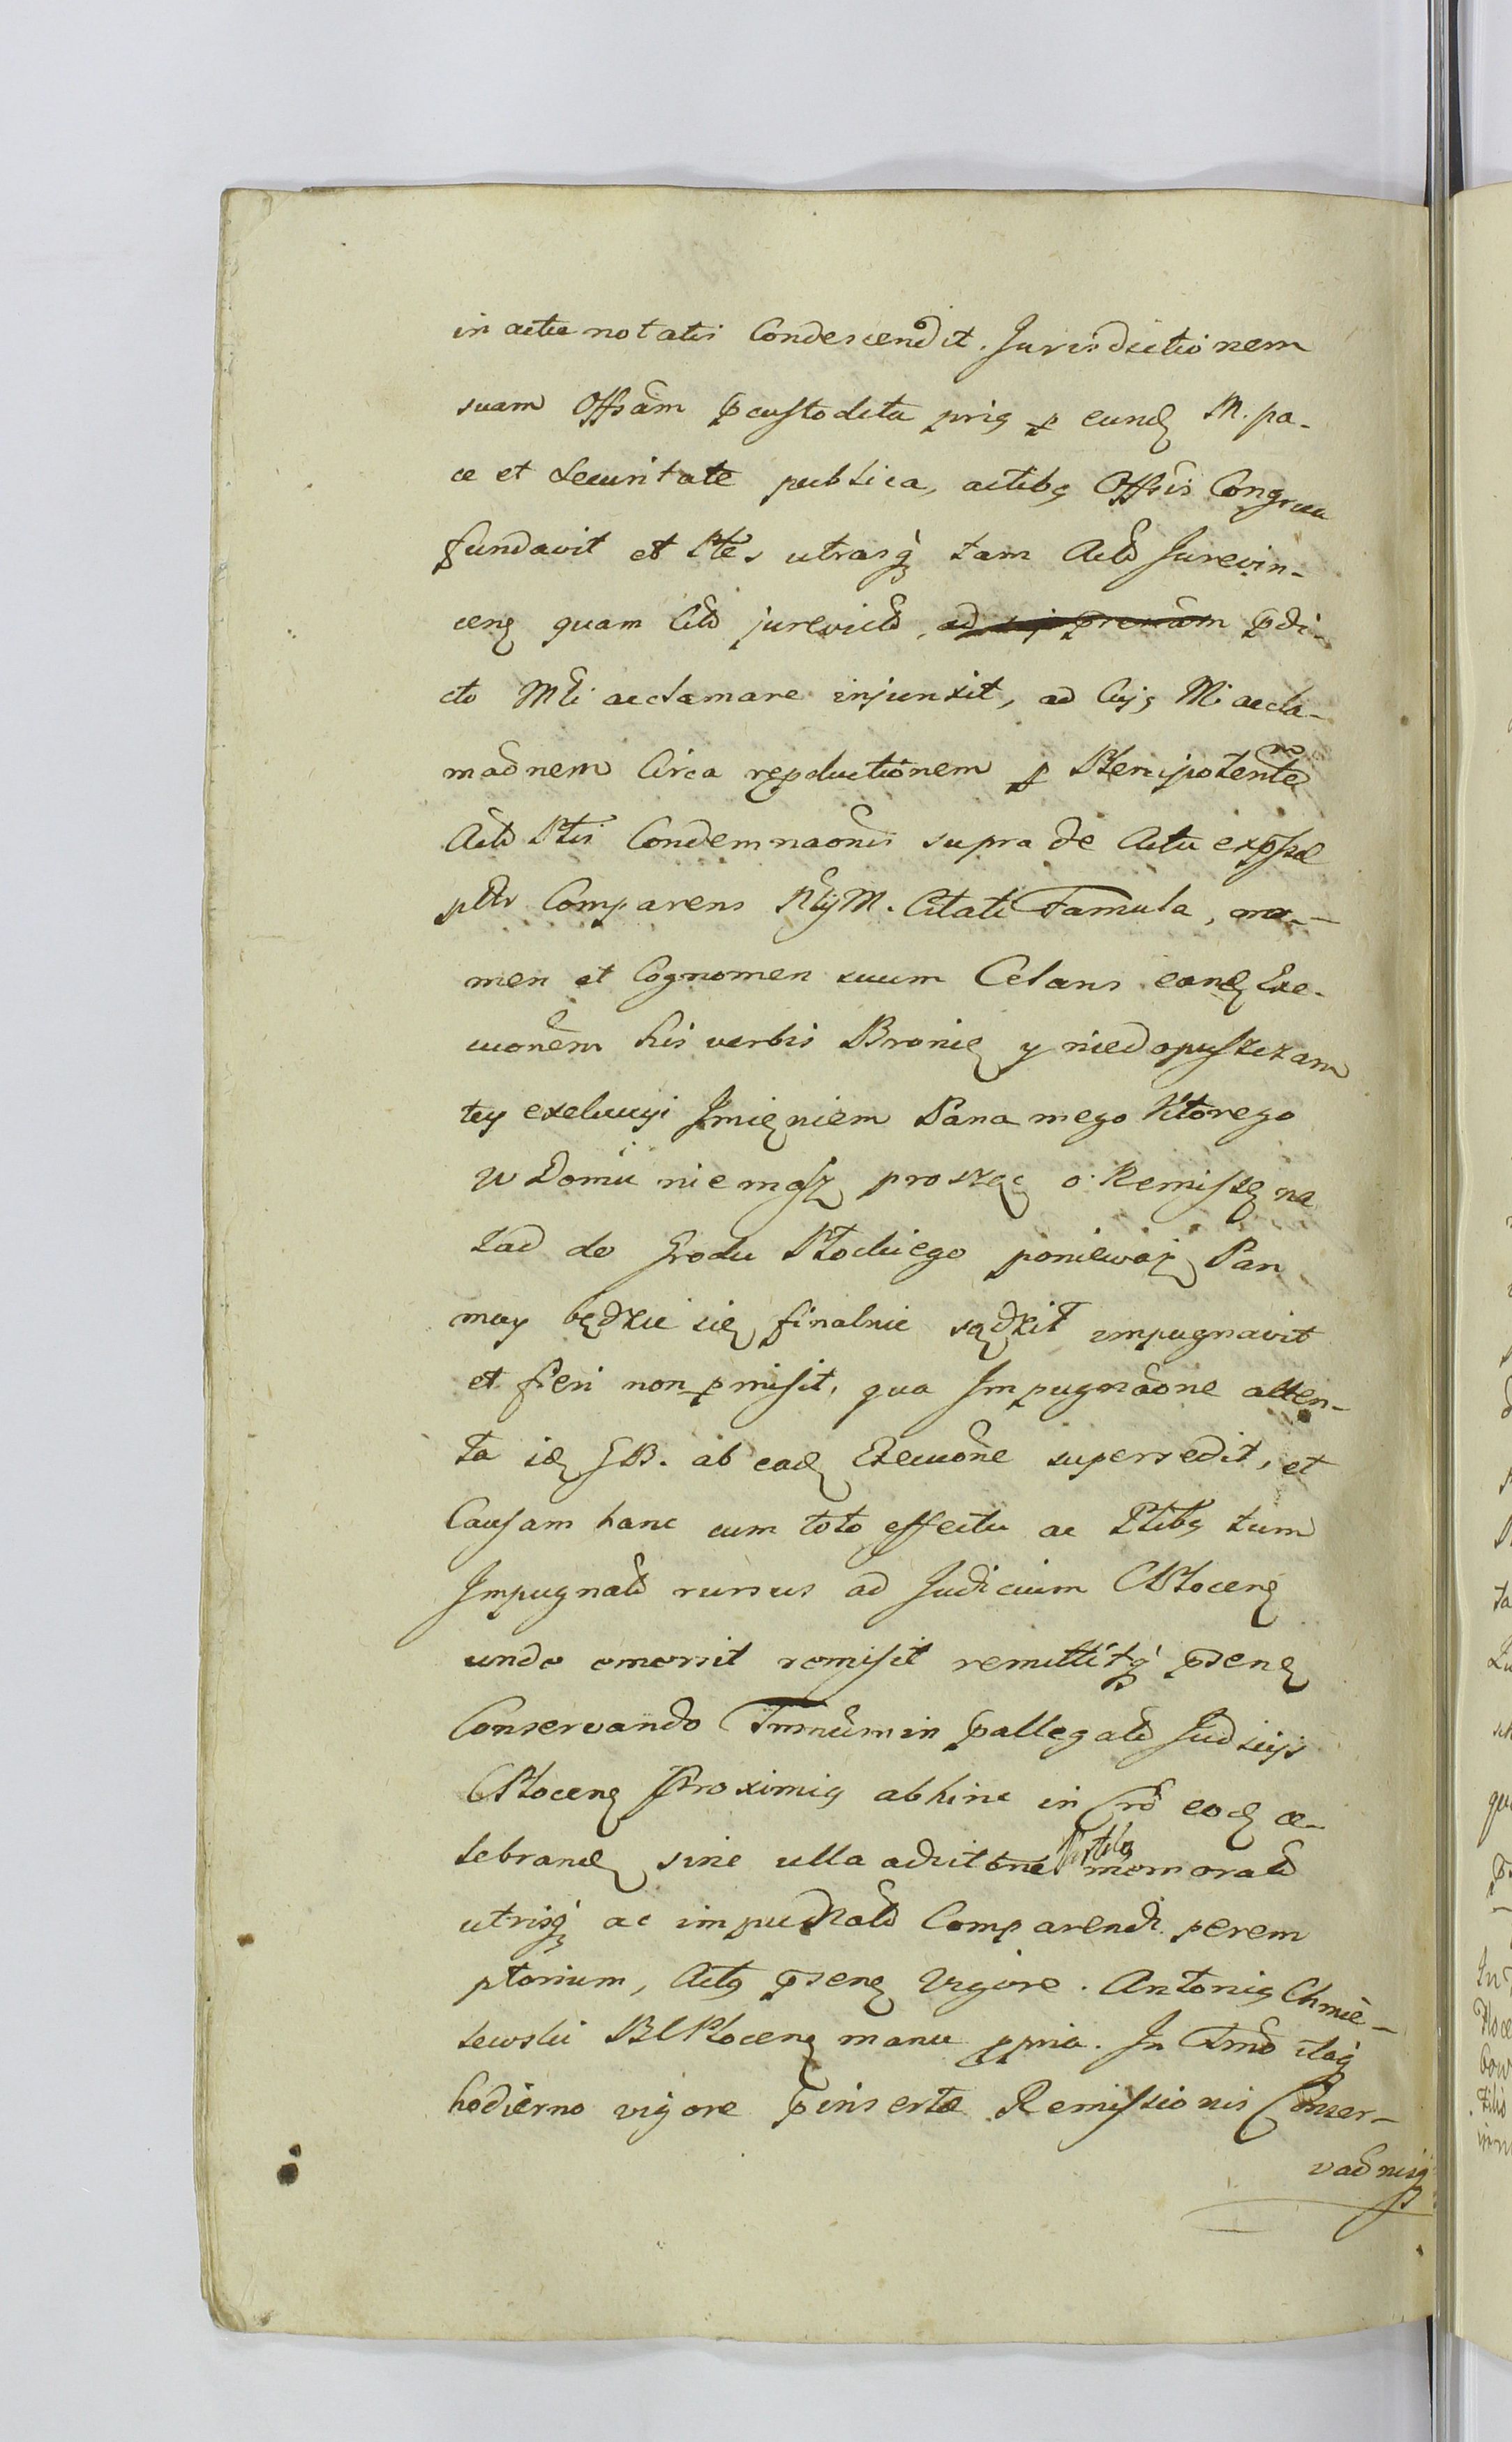 in actu notatis Condescendit. Jurisdictionem
suam Offsam pcustodita prig p eundę M. pa-
ce et Securitate publica, actibg Offsis Congrua
fundavit et Ptes utrasq tam Actd Jurevin-
cenę quam Citd jurevictd, pdi-
cto Mti acclamare injunxit, ad Cujg Mi accla-
maonem Circa repductionem p Plenipotentem
Actd Ptis Condemnaonis supra de Actu expsse
Comparens M. Citati Famula, no-
men et Cognomen suum Celans eandę Exe-
cuonem his verbis Bronię y niedopuszczam
tey exekucyi Jmięniem Pana mego ktorego
w Domu niemasz prosząc o Remissę na
zad do Grodu Płockiego ponieważ Pan
moy będzie się finalnie sądził impugnavit
et fieri non pmisit, qua Impugnaone atten-
ta idę GB. ab eadę Execuone supersedit, et
Causam hanc cum toto effectu ac Ptibg tum
Impugnatd rursus ad Judicium CPlocenę
unde emersit remisit remittitq psenę
Conservando Tmnum in pallegatd Judicijs
CPlocenę Proximig abhinc in Cro eodę ce-
lebrandę sine ulla aducitone Ptibg memoratd
utrisq ac impugnatd Comparendi perem
ptorium, Actg psenę Vigore. Antonig Chmie-
lewski BCPlocenę manu ppria. In Tmno itaq
hodierno vigore pinsertæ Remissionis Conser-
vaonisq